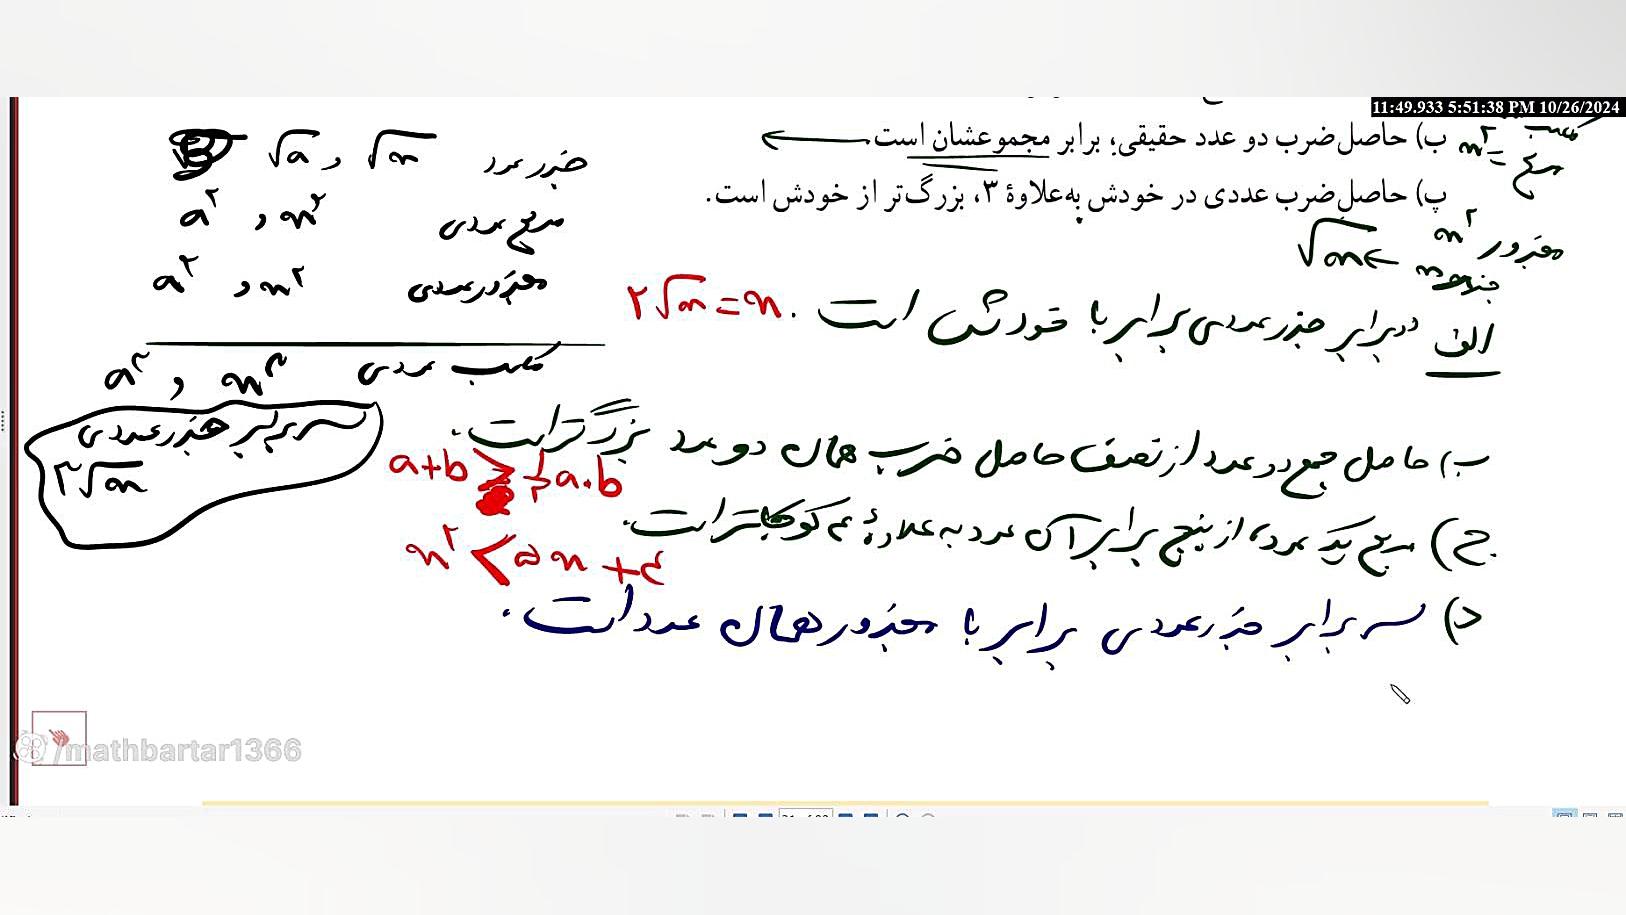 11:49.933 5:51:38 PM 10/26/2024
ب) حاصل‌ضرب دو عدد حقیقی؛ برابر مجموعشان است.
پ) حاصل‌ضرب عددی در خودش به‌علاوهٔ ۳، بزرگ‌تر از خودش است.
مکعب
مربع = x²
مجذور x²
√x ←
جذر عدد √x , √a
مربع عددی x² , a²
مجذور عددی x² , a²
مکعب عددی x³ , a³
سه برابر جذر عددی
۳√x
الف دو برابر جذر عددی برابر با خودش است. ۲√x = x
ب) حاصل جمع دو عدد از نصف حاصل ضرب همان دو عدد بزرگتر است.
a+b > ½ a.b
ج) مربع یک عدد، از پنج برابر آن عدد به علاوهٔ ۴ کوچکتر است.
x² < ۵x + ۴
د) سه برابر جذر عددی برابر با مجذور همان عدد است.
/mathbartar1366